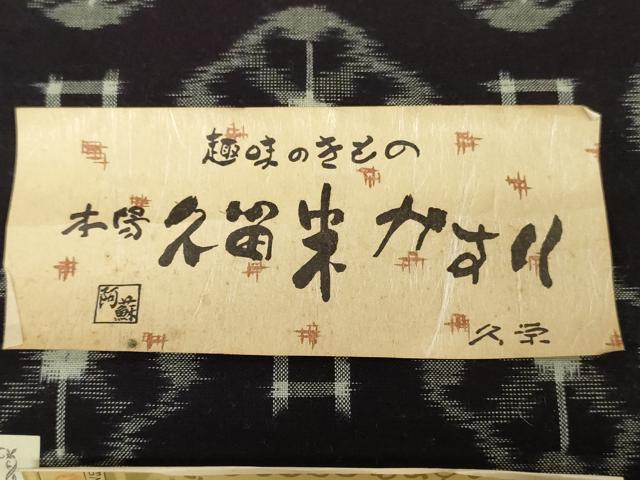 趣味のきもの
本場久留米かすり
阿蘇
久栄